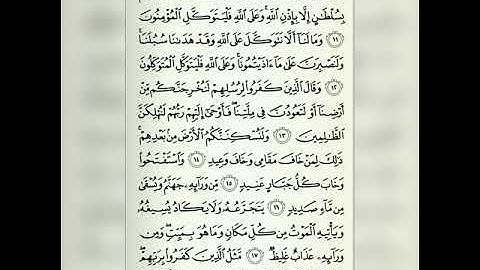 بِسُلْطَٰنٍ إِلَّا بِإِذْنِ ٱللَّهِ وَعَلَى ٱللَّهِ فَلْيَتَوَكَّلِ ٱلْمُؤْمِنُونَ
١١ وَمَا لَنَآ أَلَّا نَتَوَكَّلَ عَلَى ٱللَّهِ وَقَدْ هَدَىٰنَا سُبُلَنَا ۚ
وَلَنَصْبِرَنَّ عَلَىٰ مَآ ءَاذَيْتُمُونَا ۚ وَعَلَى ٱللَّهِ فَلْيَتَوَكَّلِ ٱلْمُتَوَكِّلُونَ
١٢ وَقَالَ ٱلَّذِينَ كَفَرُوا۟ لِرُسُلِهِمْ لَنُخْرِجَنَّكُم مِّنْ
أَرْضِنَآ أَوْ لَتَعُودُنَّ فِى مِلَّتِنَا ۖ فَأَوْحَىٰٓ إِلَيْهِمْ رَبُّهُمْ لَنُهْلِكَنَّ
ٱلظَّٰلِمِينَ ١٣ وَلَنُسْكِنَنَّكُمُ ٱلْأَرْضَ مِنۢ بَعْدِهِمْ ۚ
ذَٰلِكَ لِمَنْ خَافَ مَقَامِى وَخَافَ وَعِيدِ ١٤ وَٱسْتَفْتَحُوا۟
وَخَابَ كُلُّ جَبَّارٍ عَنِيدٍ ١٥ مِّن وَرَآئِهِۦ جَهَنَّمُ وَيُسْقَىٰ
مِن مَّآءٍ صَدِيدٍ ١٦ يَتَجَرَّعُهُۥ وَلَا يَكَادُ يُسِيغُهُۥ
وَيَأْتِيهِ ٱلْمَوْتُ مِن كُلِّ مَكَانٍ وَمَا هُوَ بِمَيِّتٍ ۖ وَمِن
وَرَآئِهِۦ عَذَابٌ غَلِيظٌ ١٧ مَّثَلُ ٱلَّذِينَ كَفَرُوا۟ بِرَبِّهِمْ ۖ